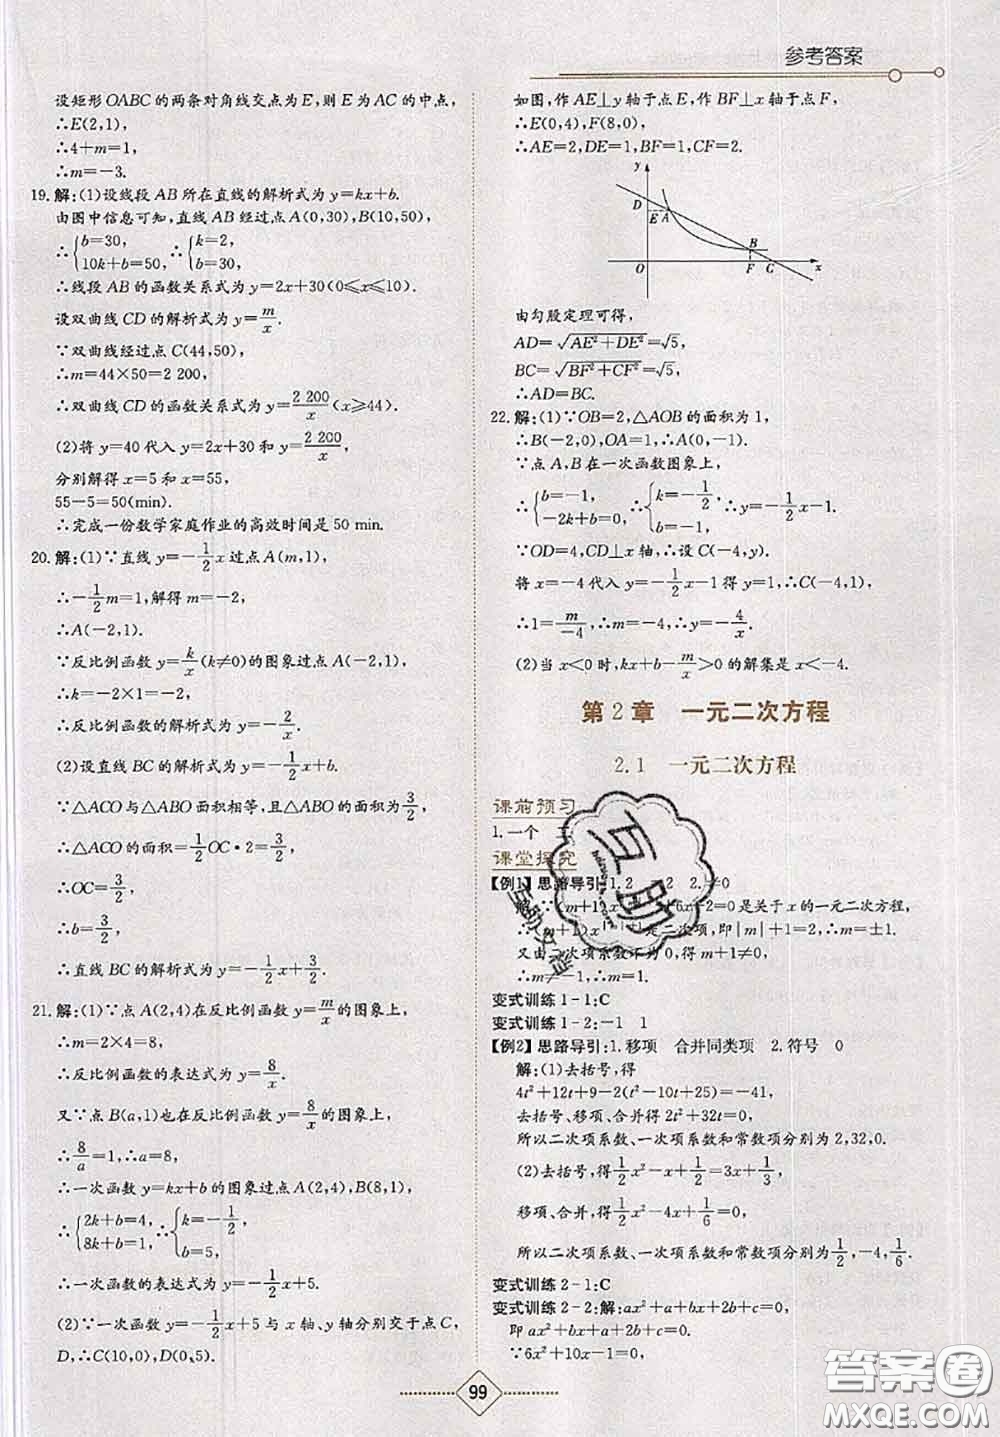 参考答案
设矩形OABC的两条对角线交点为E,则E为AC的中点,
∴E(2,1),
∴4+m=1,
∴m=-3.
19.解:(1)设线段AB所在直线的解析式为y=kx+b.
由图中信息可知,直线AB经过点A(0,30),B(10,50),
∴{b=30, 10k+b=50, ∴{k=2, b=30.
∴线段AB的函数关系式为y=2x+30(0≤x≤10).
设双曲线CD的解析式为y=m/x.
∵双曲线经过点C(44,50),
∴m=44×50=2 200,
∴双曲线CD的函数关系式为y=2 200/x(x≥44).
(2)将y=40代入y=2x+30和y=2 200/x,
分别解得x=5和x=55.
55-5=50(min).
∴完成一份数学家庭作业的高效时间是50 min.
20.解:(1)∵直线y=-1/2x过点A(m,1),
∴-1/2m=1,解得m=-2,
∴A(-2,1).
∵反比例函数y=k/x(k≠0)的图象过点A(-2,1),
∴k=-2×1=-2,
∴反比例函数的解析式为y=-2/x.
(2)设直线BC的解析式为y=-1/2x+b,
∵△ACO与△ABO面积相等,且△ABO的面积为3/2,
∴△ACO的面积=1/2OC·2=3/2,
∴OC=3/2,
∴b=3/2,
∴直线BC的解析式为y=-1/2x+3/2.
21.解:(1)∵点A(2,4)在反比例函数y=m/x的图象上,
∴m=2×4=8,
∴反比例函数的表达式为y=8/x.
又∵点B(a,1)也在反比例函数y=8/x的图象上,
∴8/a=1,∴a=8,
∴一次函数y=kx+b的图象过点A(2,4),B(8,1),
∴{2k+b=4, 8k+b=1, ∴{k=-1/2, b=5.
∴一次函数的表达式为y=-1/2x+5.
(2)∵一次函数y=-1/2x+5与x轴、y轴分别交于点C、
D,∴C(10,0),D(0,5).
如图,作AE⊥y轴于点E,作BF⊥x轴于点F,
∴E(0,4),F(8,0),
∴AE=2,DE=1,BF=1,CF=2.
y
D
E A
B
O F C x
由勾股定理可得,
AD=√(AE²+DE²)=√5,
BC=√(BF²+CF²)=√5,
∴AD=BC.
22.解:(1)∵OB=2,△AOB的面积为1,
∴B(-2,0),OA=1,∴A(0,-1).
∵点A,B在一次函数图象上,
∴{b=-1, -2k+b=0, ∴{k=-1/2, b=-1. ∴y=-1/2x-1.
∵OD=4,CD⊥x轴,∴设C(-4,y),
将x=-4代入y=-1/2x-1得y=1,∴C(-4,1),
∴1=m/-4,∴m=-4,∴y=-4/x.
(2)当x<0时,kx+b-m/x>0的解集是x<-4.
第2章 一元二次方程
2.1 一元二次方程
课前预习
1.一个
课堂探究
【例1】思路导引:1.2 2 2.≠0
解:∵(m+1)x +6x+2=0是关于x的一元二次方程,
∴(m+1)x 是二次项,即|m|+1=2,∴m=±1.
又由二次项系数不为0,
∴m≠-1,∴m=1.
变式训练1-1:C
变式训练1-2:-1 1
【例2】思路导引:1.移项 合并同类项 2.符号 0
解:(1)去括号,得
4t²+12t+9-2(t²-10t+25)=-41,
去括号、移项、合并得2t²+32t=0,
所以二次项系数、一次项系数和常数项分别为2,32,0.
(2)去括号,得1/2x²-x+1/2=3x+1/3,
移项、合并,得1/2x²-4x+1/6=0,
所以二次项系数、一次项系数和常数项分别为1/2,-4,1/6.
变式训练2-1:C
变式训练2-2:解:ax²+a+bx+a+b+c=0,
即ax²+bx+a+2b+c=0.
∵6x²+10x-1=0,
99
互助
互助文档
答案圈
MXQE.COM